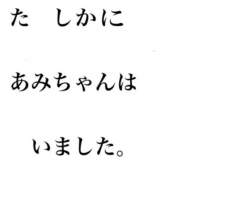 た　しかに
あみちゃんは
　いました。